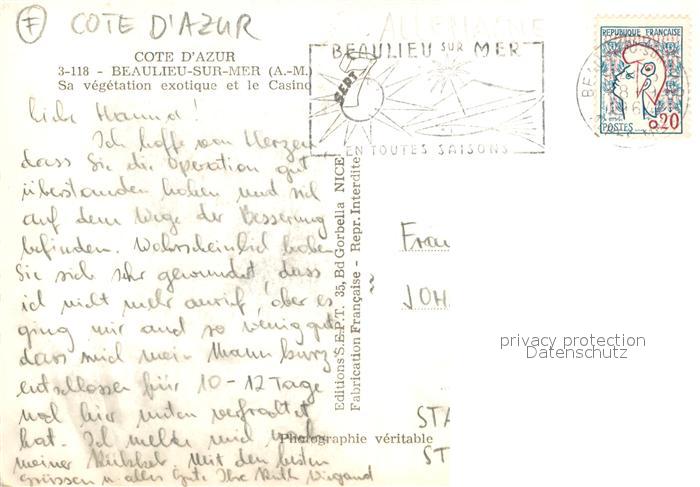 F COTE D'AZUR
ALLEMAGNE
COTE D'AZUR
3-118 - BEAULIEU-SUR-MER (A.-M.)
Sa végétation exotique et le Casino
BEAULIEU SUR MER
EN TOUTES SAISONS
REPUBLIQUE FRANÇAISE
0,20
POSTES
SEPT
Liebe Hanna!
Ich hoffe von Herzen,
dass Sie die Operation gut
überstanden haben und sich
auf dem Wege der Besserung
befinden. Wahrscheinlich haben
Sie sich sehr gewundert, dass
ich nicht mehr anrief, aber es
ging mir auch so wenig gut,
dass mich mein Mann kurz
entschlossen für 10-12 Tage
nach hier unten verfrachtet
hat. Ich melde mich nach
meiner Rückkehr. Mit den besten
Grüssen u. alles Gute Ihre Ruth Wiegand
Editions S.E.P.T. 35, Bd Gorbella NICE
Fabrication Française - Repr. Interdite
Photographie véritable
Frau
JOH
STA
ST
privacy protection
Datenschutz